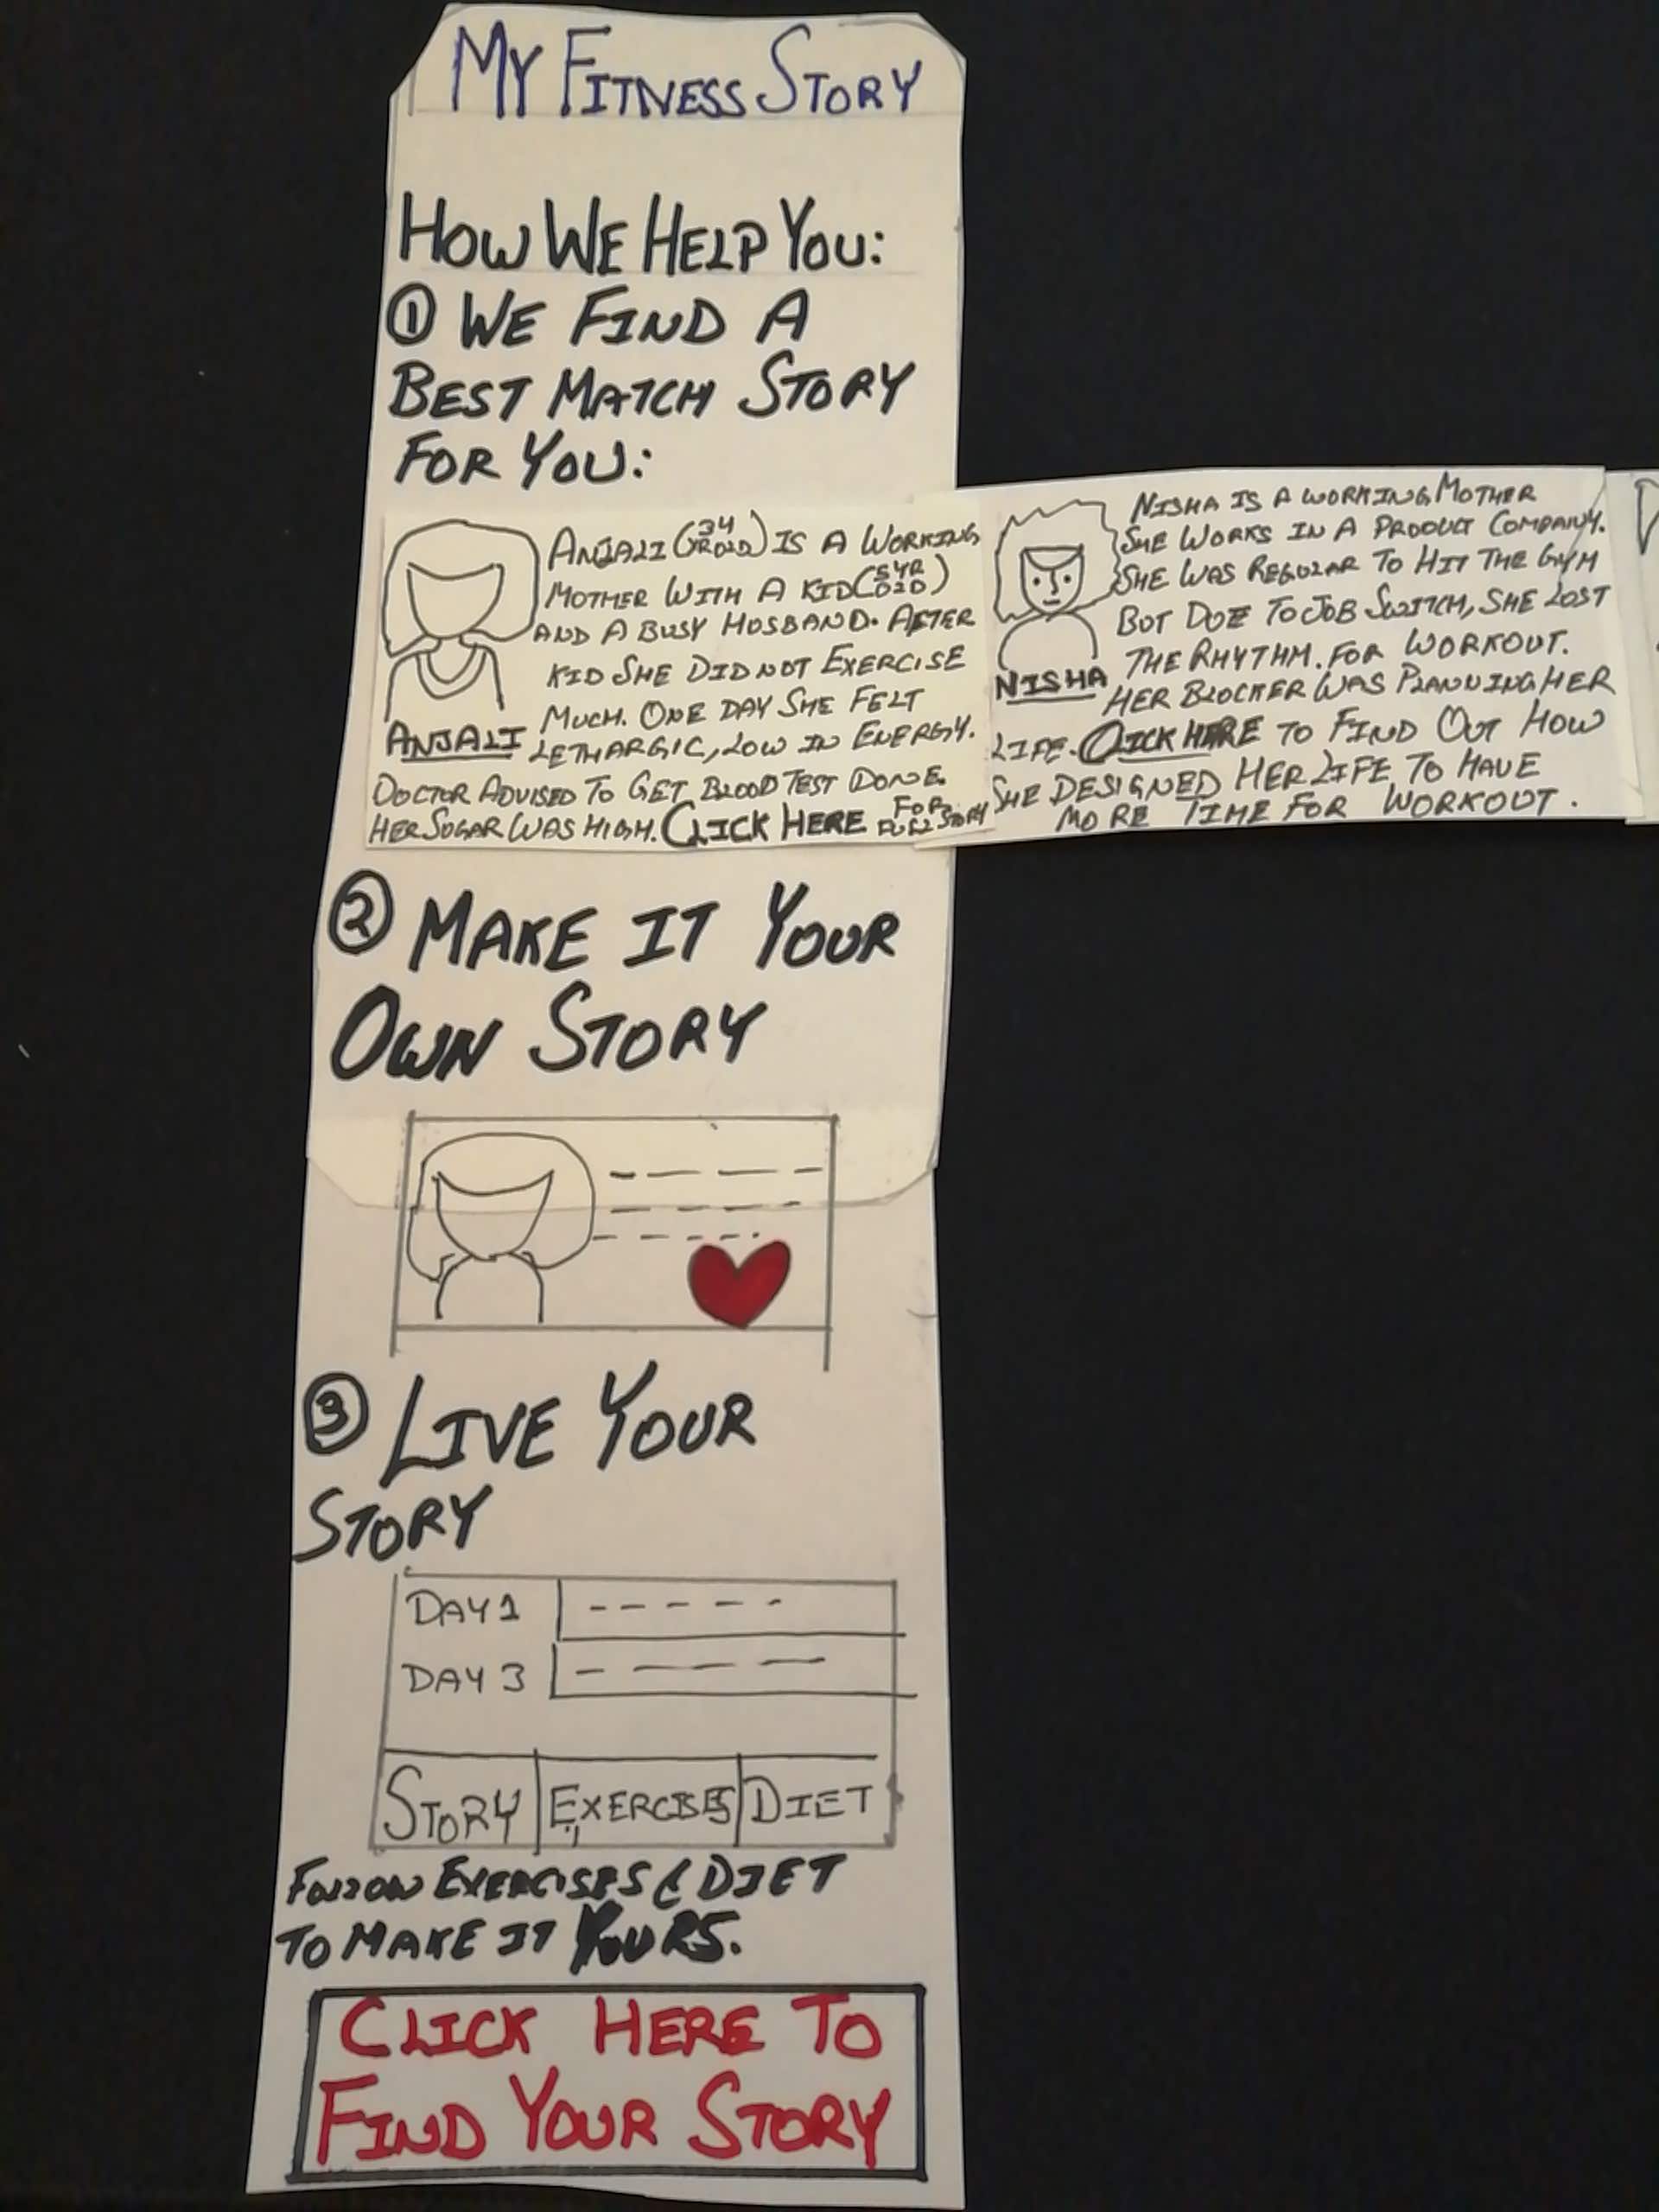 MY FITNESS STORY
HOW WE HELP YOU:
① WE FIND A
BEST MATCH STORY
FOR YOU:
ANJALI (34 YR OLD) IS A WORKING
MOTHER WITH A KID (5 YR OLD)
AND A BUSY HUSBAND. AFTER
KID SHE DID NOT EXERCISE
MUCH. ONE DAY SHE FELT
ANJALI LETHARGIC, LOW IN ENERGY.
DOCTOR ADVISED TO GET BLOOD TEST DONE.
HER SUGAR WAS HIGH. CLICK HERE FOR FULL STORY
NISHA IS A WORKING MOTHER
SHE WORKS IN A PRODUCT COMPANY.
SHE WAS REGULAR TO HIT THE GYM
BUT DUE TO JOB SWITCH, SHE LOST
THE RHYTHM. FOR WORKOUT.
NISHA HER BLOCKER WAS PLANNING HER
LIFE. CLICK HERE TO FIND OUT HOW
SHE DESIGNED HER LIFE TO HAVE
MORE TIME FOR WORKOUT.
② MAKE IT YOUR
OWN STORY
③ LIVE YOUR
STORY
DAY 1
DAY 3
STORY EXERCISES DIET
FOLLOW EXERCISES & DIET
TO MAKE IT YOURS.
CLICK HERE TO
FIND YOUR STORY